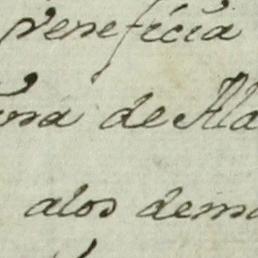 veneficia
na de Ala
alos dema